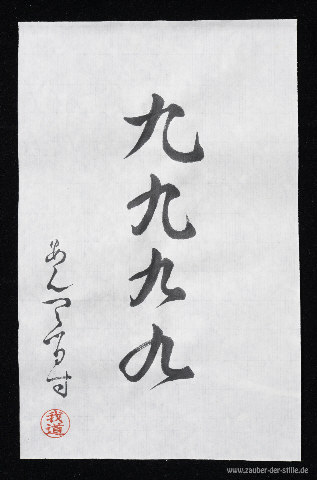 九九九九
我道
www.zauber-der-stille.de